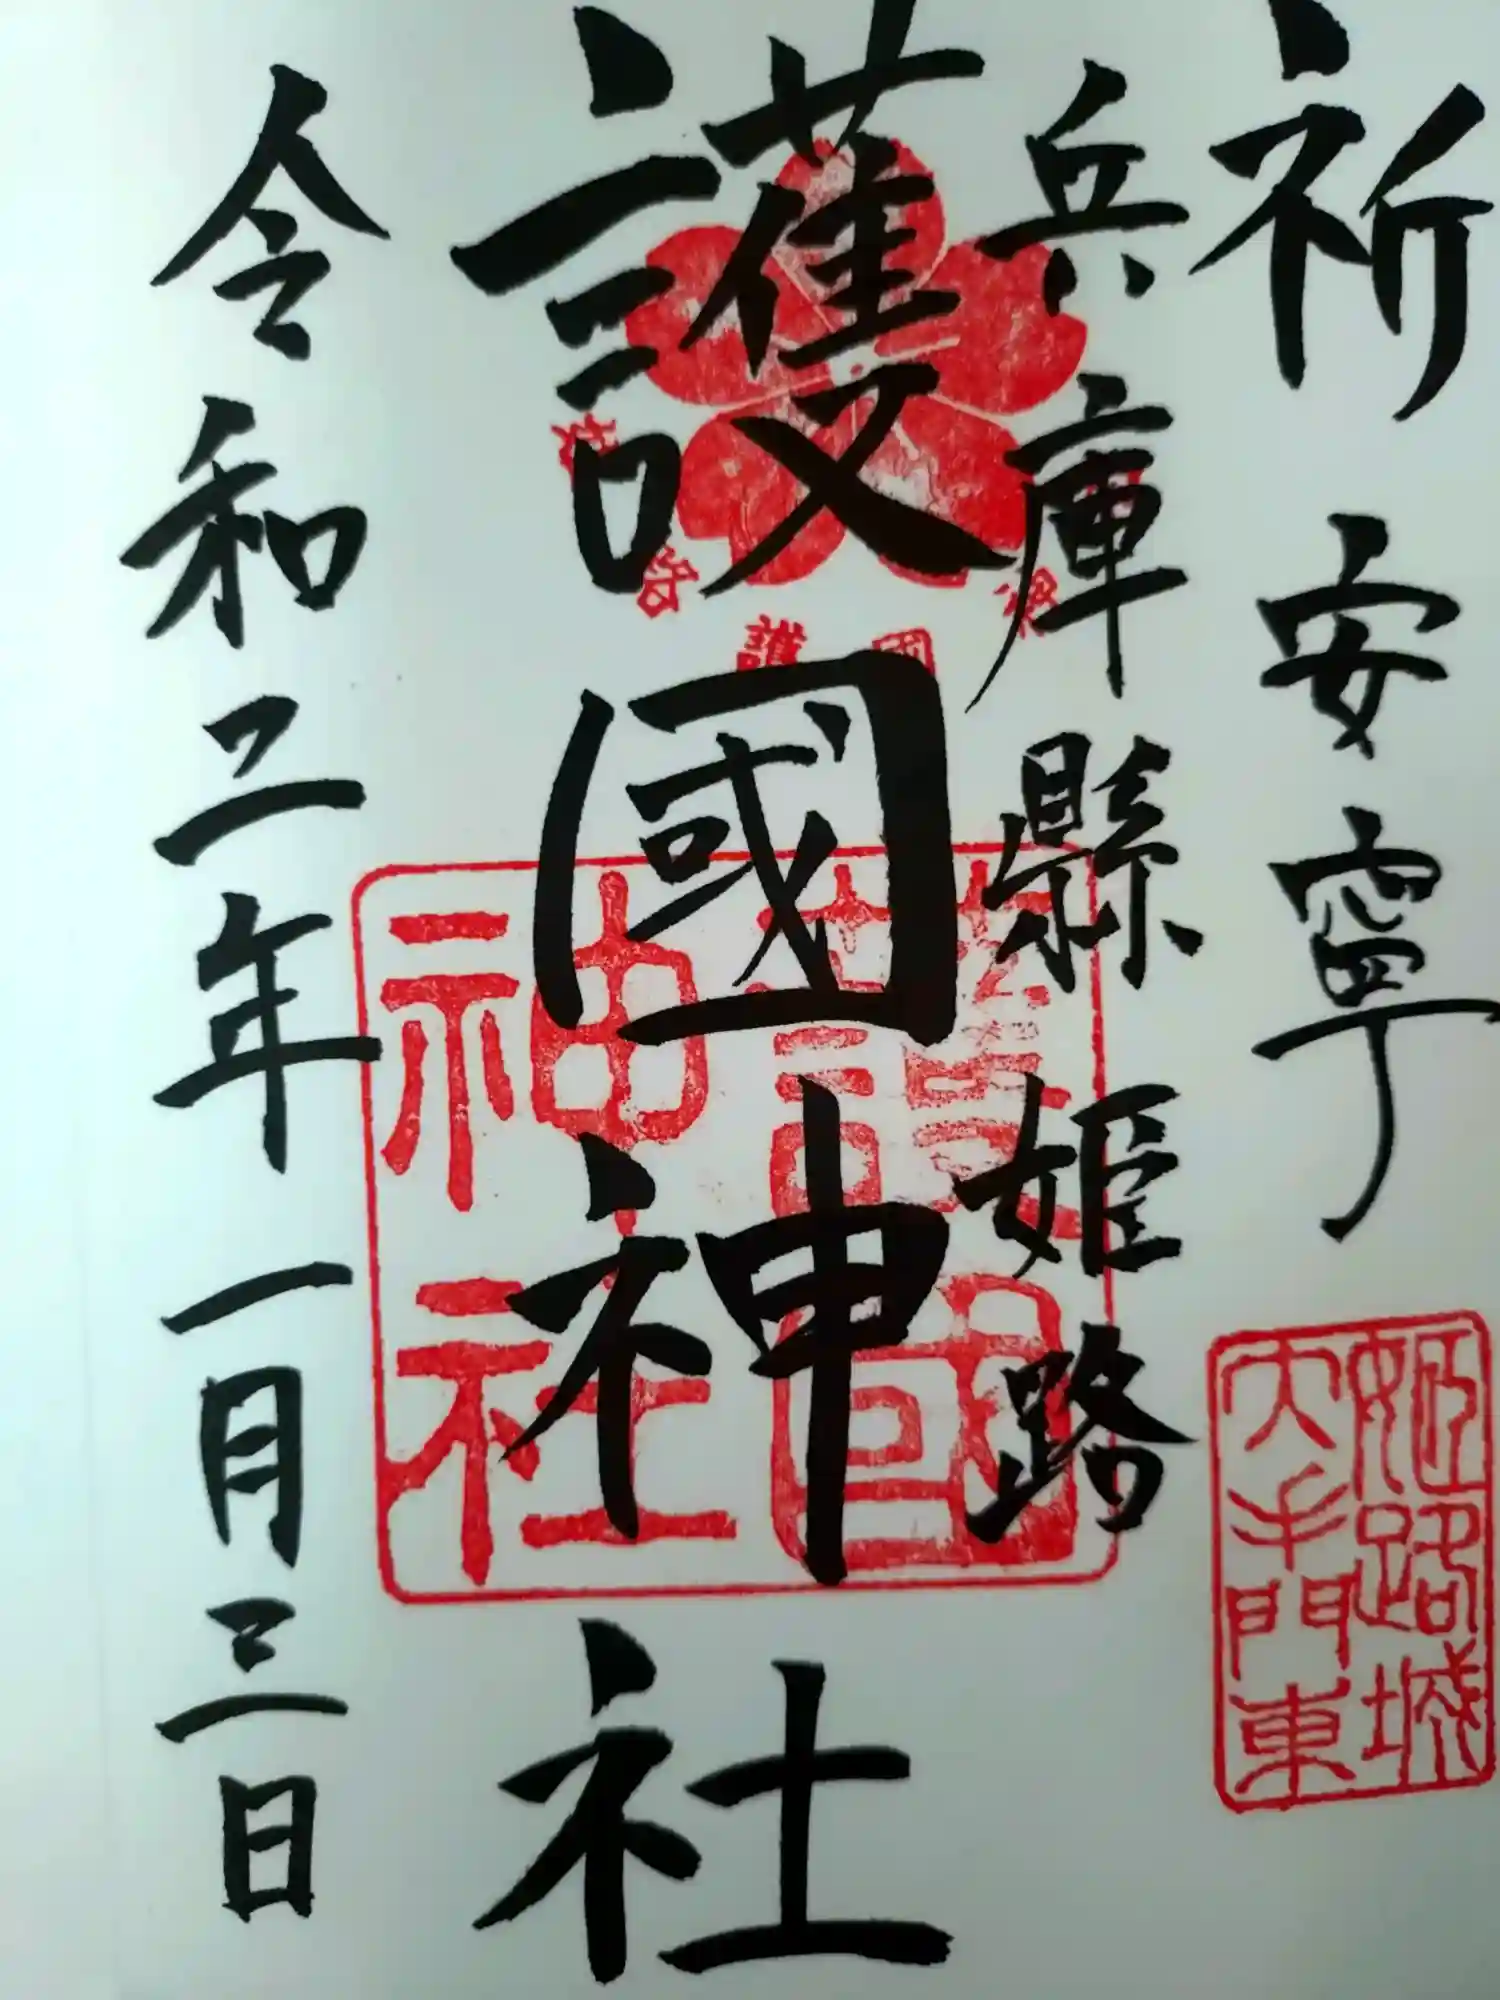 祈安寧
姫路城
大手門東
兵庫縣姫路
護國神社
姫路護國神社
護國
神社
令和二年一月三日